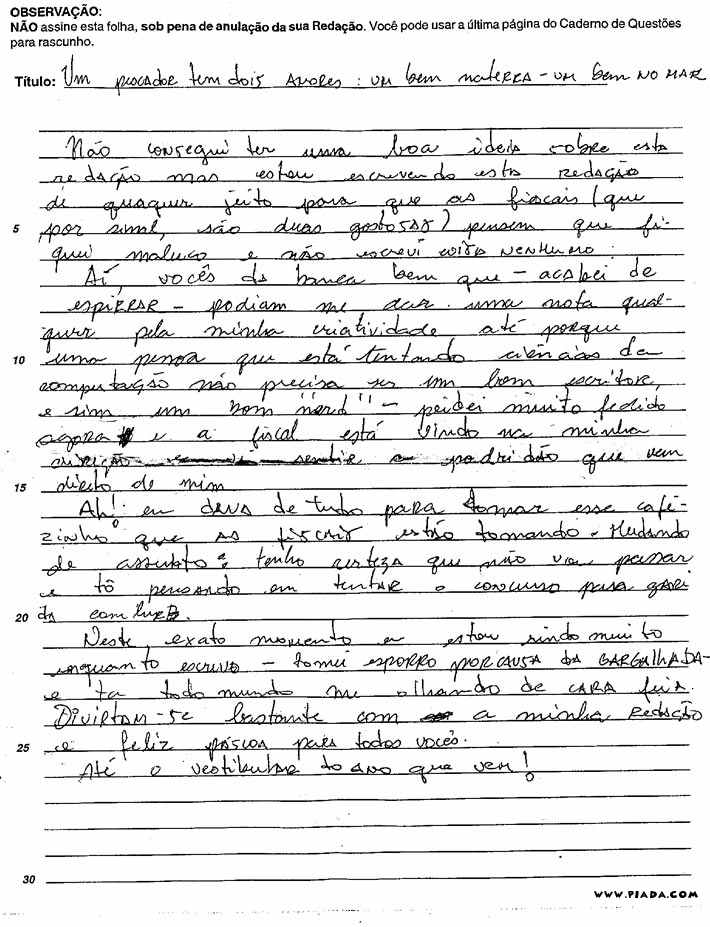 OBSERVAÇÃO:
NÃO assine esta folha, sob pena de anulação da sua Redação. Você pode usar a última página do Caderno de Questões
para rascunho.
Título: Um pescador tem dois Amores: um bem na terra - um bem NO MAR
Não consegui ter uma boa ideia sobre esta
redação mas estou escrevendo esta redação
de quaquer jeito para que as fiscais (que
5 por sinal, são duas gostosas) pensem que fi-
quei maluco e não escrevi coisa nenhuma.
Aí, vocês da banca bem que - acabei de
espirrar - podiam me dar uma nota qual-
quer pela minha criatividade até porque
10 uma pessoa que está tentando ciências da
computação não precisa ser um bom escritor,
e sim um bom "nerd" - peidei muito fedido
agora e a fiscal está vindo na minha
direção sentir a podridão que vem
15 direto de mim
Ah! eu dava de tudo para tomar esse cafe-
zinho que as fiscais estão tomando. Mudando
de assunto: tenho certeza que não vou passar
e tô pensando em tentar o concurso para gari
20 da comlurb.
Neste exato momento eu estou rindo muito
enquanto escrevo - tomei esporro por causa da GARGALHADA -
e ta todo mundo me olhando de CARA feia.
Divirtam-se bastante com a minha Redação
25 e feliz páscoa para todos vocês.
Até o vestibular do ano que vem!
30
WWW.PIADA.COM